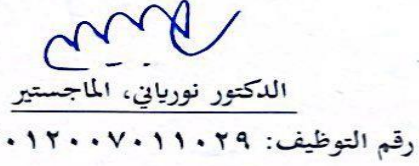 الدكتور نورياني، الماجستير
رقم التوظيف: ٠١٢٠٠٧٠١١٠٢٩